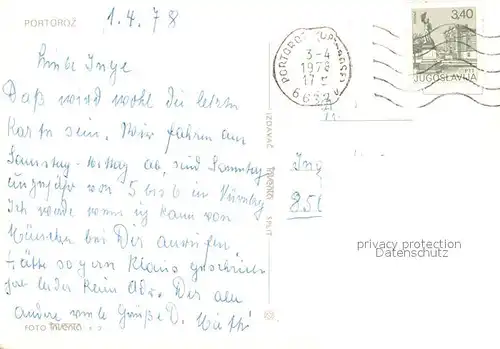 PORTOROŽ
1.4.78
Liebe Inge
Daß wird wohl die letzte
Karte sein. Wir fahren am
Samstag Mittag ab, sind Sonntag
ungefähr von 5 bis 6 in Nürnberg
Ich werde wenn ich kann von
München bei Dir anrufen
Hätte so gern Klaus geschrieben
hab leider keine Adr. Dir alles
andere viele Grüße D.
FOTO
IZDAVAČ
SPLIT
PORTOROŽ
3-4
1978
17
3,40
JUGOSLAVIJA
Ing
851
privacy protection
Datenschutz